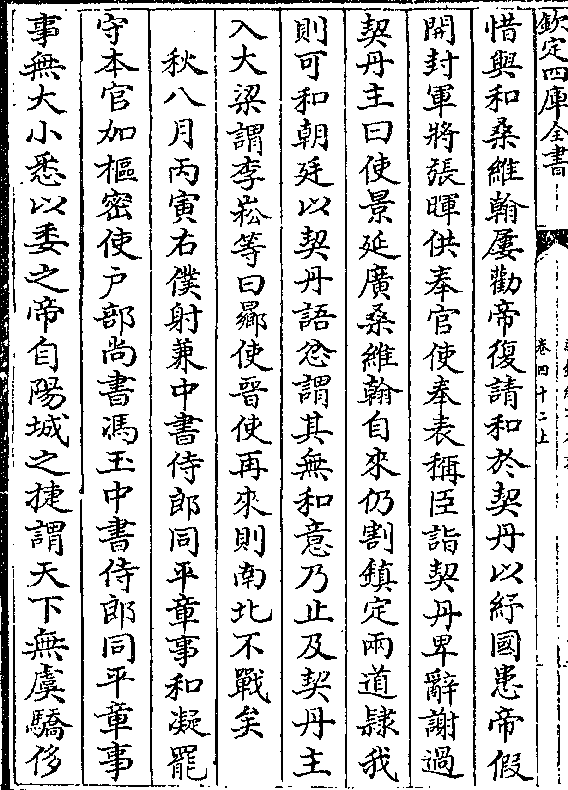 欽定四庫全書
卷四十二上
惜與和桑維翰屢勸帝復請和於契丹以紓國患帝假
開封軍將張暉供奉官使奉表稱臣詣契丹卑辭謝過
契丹主曰使景延廣桑維翰自來仍割鎮定兩道隷我
則可和朝廷以契丹語忿謂其無和意乃止及契丹主
入大梁謂李崧等曰曏使晉使再來則南北不戰矣
秋八月丙寅右僕射兼中書侍郎同平章事和凝罷
守本官加樞密使户部尚書馮玉中書侍郎同平章事
事無大小悉以委之帝自陽城之捷謂天下無虞驕侈